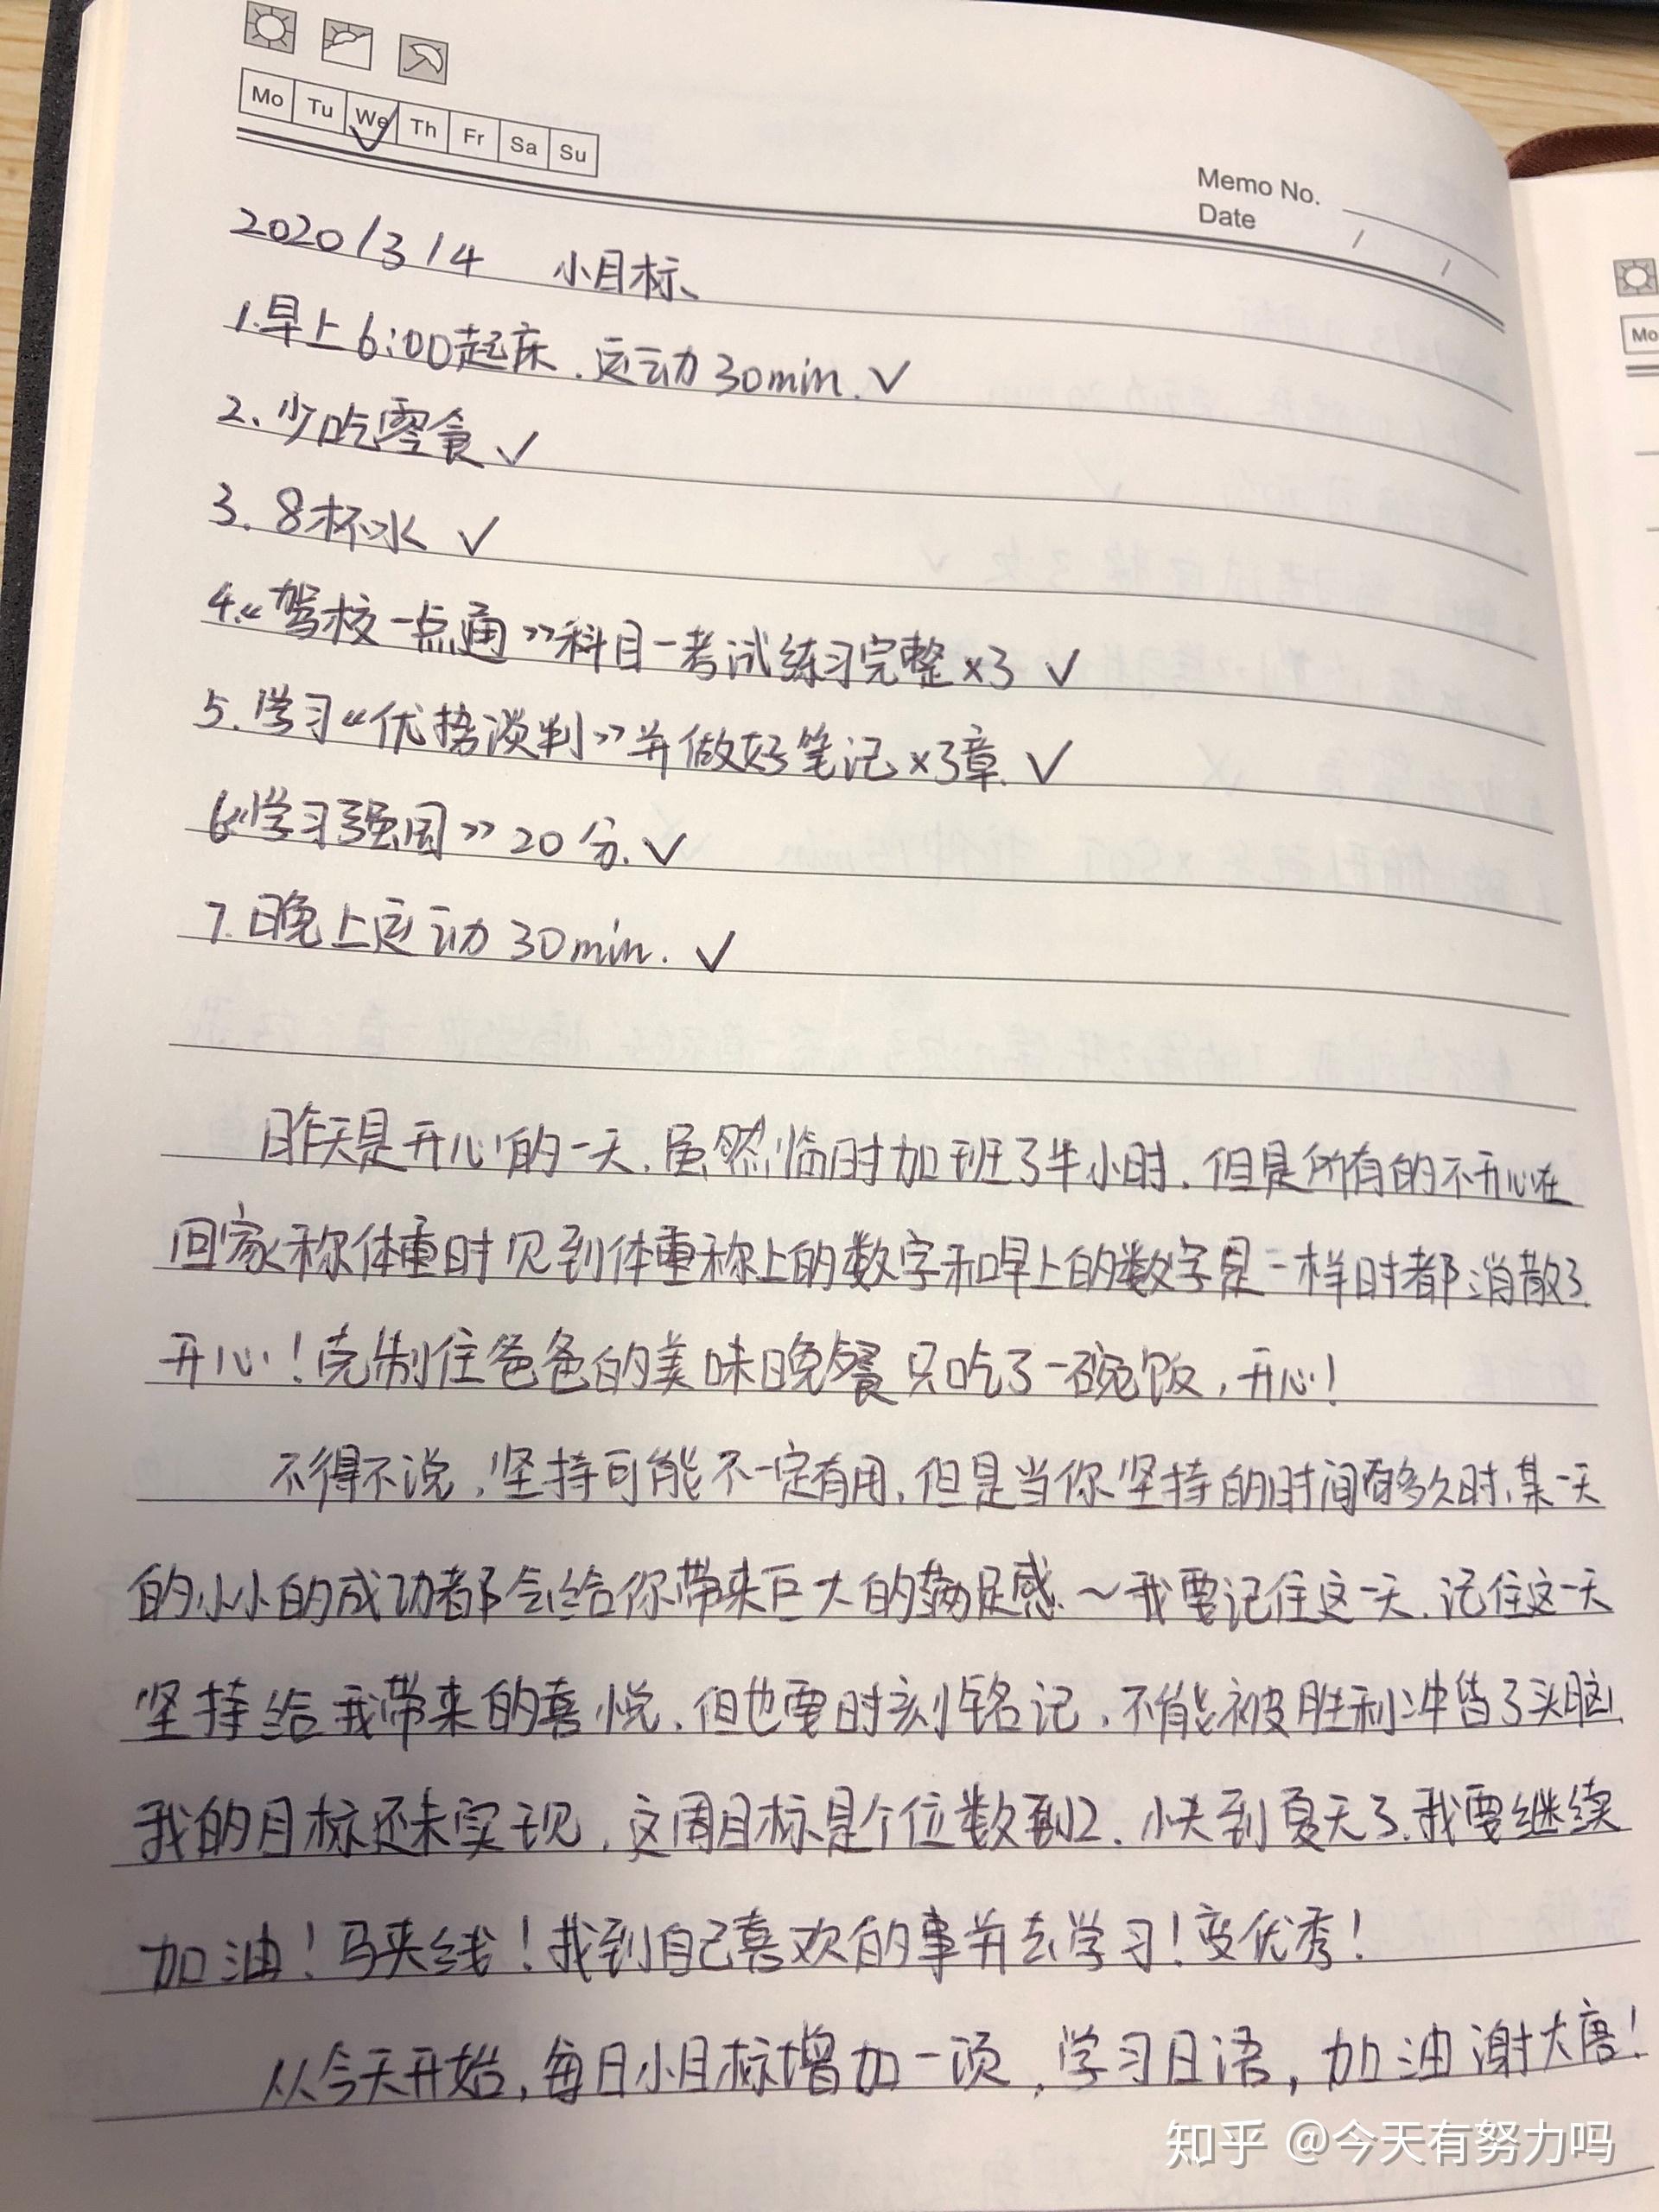 Mo Tu We Th Fr Sa Su
Memo No.
Date / /
2020/3/4 小目标
1.早上6:00起床.运动30min.✓
2.少吃零食✓
3.8杯水 ✓
4.《驾校一点通》科目一考试练习完整×3 ✓
5.学习《优势谈判》并做好笔记×3章.✓
6《学习强国》20分.✓
7.晚上运动30min.✓
昨天是开心的一天.虽然临时加班了半小时.但是所有的不开心在
回家称体重时见到体重称上的数字和早上的数字是一样时都消散了.
开心!克制住爸爸的美味晚餐只吃了一碗饭,开心!
不得不说,坚持可能不一定有用.但是当你坚持的时间有多久时.某一天
的小小的成功都会给你带来巨大的满足感.~我要记住这一天.记住这一天
坚持给我带来的喜悦.但也要时刻铭记.不能被胜利冲昏了头脑.
我的目标还未实现.这周目标是个位数到2.小夫到夏天了.我要继续
加油!马夹线!找到自己喜欢的事并去学习!变优秀!
从今天开始,每日小目标增加一项.学习日语,加油谢大唐!
知乎 @今天有努力吗
Mo